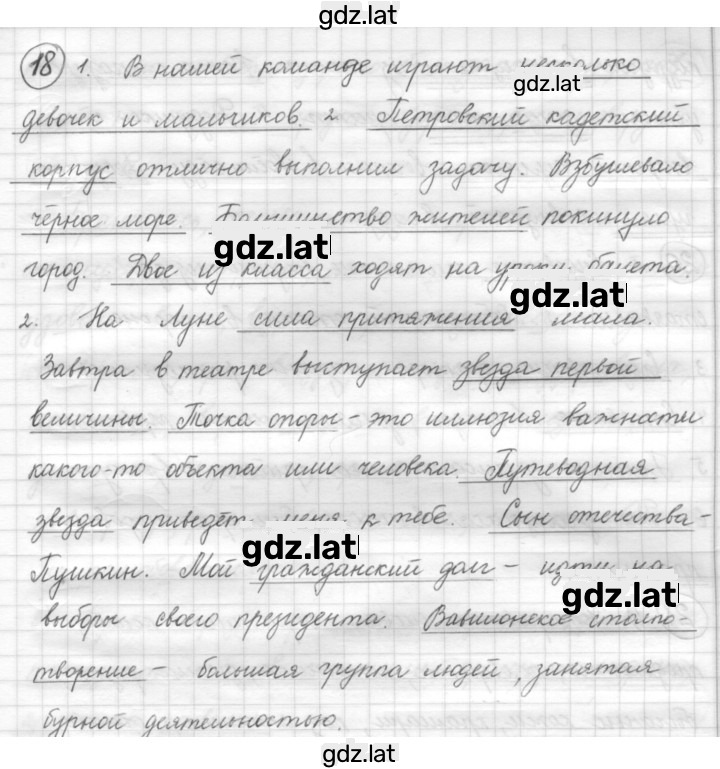 gdz.lat
18 1. В нашей команде играют несколько
gdz.lat
девочек и мальчиков. 2 Петровский кадетский
корпус отлично выполнил задачу. Взбушевало
чёрное море. Большинство жителей покинуло
gdz.lat
город. Двое из класса ходят на уроки балета.
gdz.lat
2. На Луне сила притяжения мала.
Завтра в театре выступает звезда первой
величины. Точка опоры – это иллюзия важности
какого-то объекта или человека. Путеводная
звезда приведёт меня к тебе. Сын отечества –
gdz.lat
Пушкин. Мой гражданский долг – идти на
gdz.lat
выборы своего президента. Вавилонское столпо-
творение – большая группа людей, занятая
бурной деятельностью.
gdz.lat